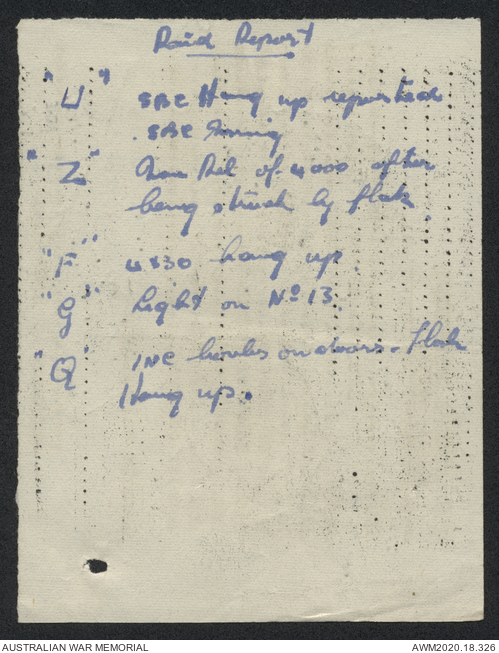 Raid Report
"U" SBC Hang up reported
SBC
"Z" Non Rel of 4000 after
being struck by flak
"F" 4x30 hang up
"G" Light on No 13
"Q" INC bombs on doors - flak
Hang up.
AUSTRALIAN WAR MEMORIAL
AWM2020.18.326